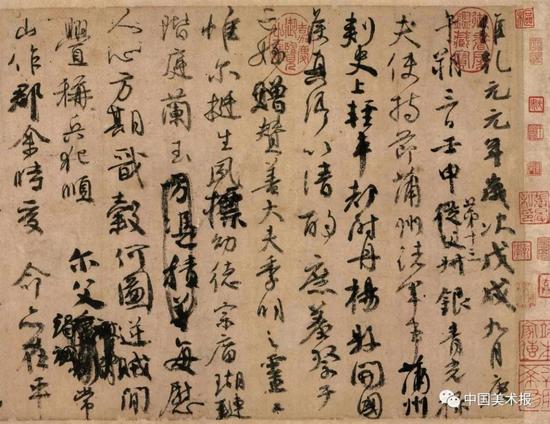 維乾元元年歲次戊戌九月庚
午朔三日壬申第十三從父叔銀青光祿
夫使持節蒲州諸軍事蒲州
刺史上輕車都尉丹楊縣開國
侯真卿以清酌庶羞祭于
亡姪贈贊善大夫季明之靈曰
惟爾挺生夙標幼德宗廟瑚璉
階庭蘭玉方憑積善每慰
人心方期戩穀何圖逆賊閒
釁稱兵犯順 爾父竭誠常
山作郡余時受 命亦在平
中国美术报